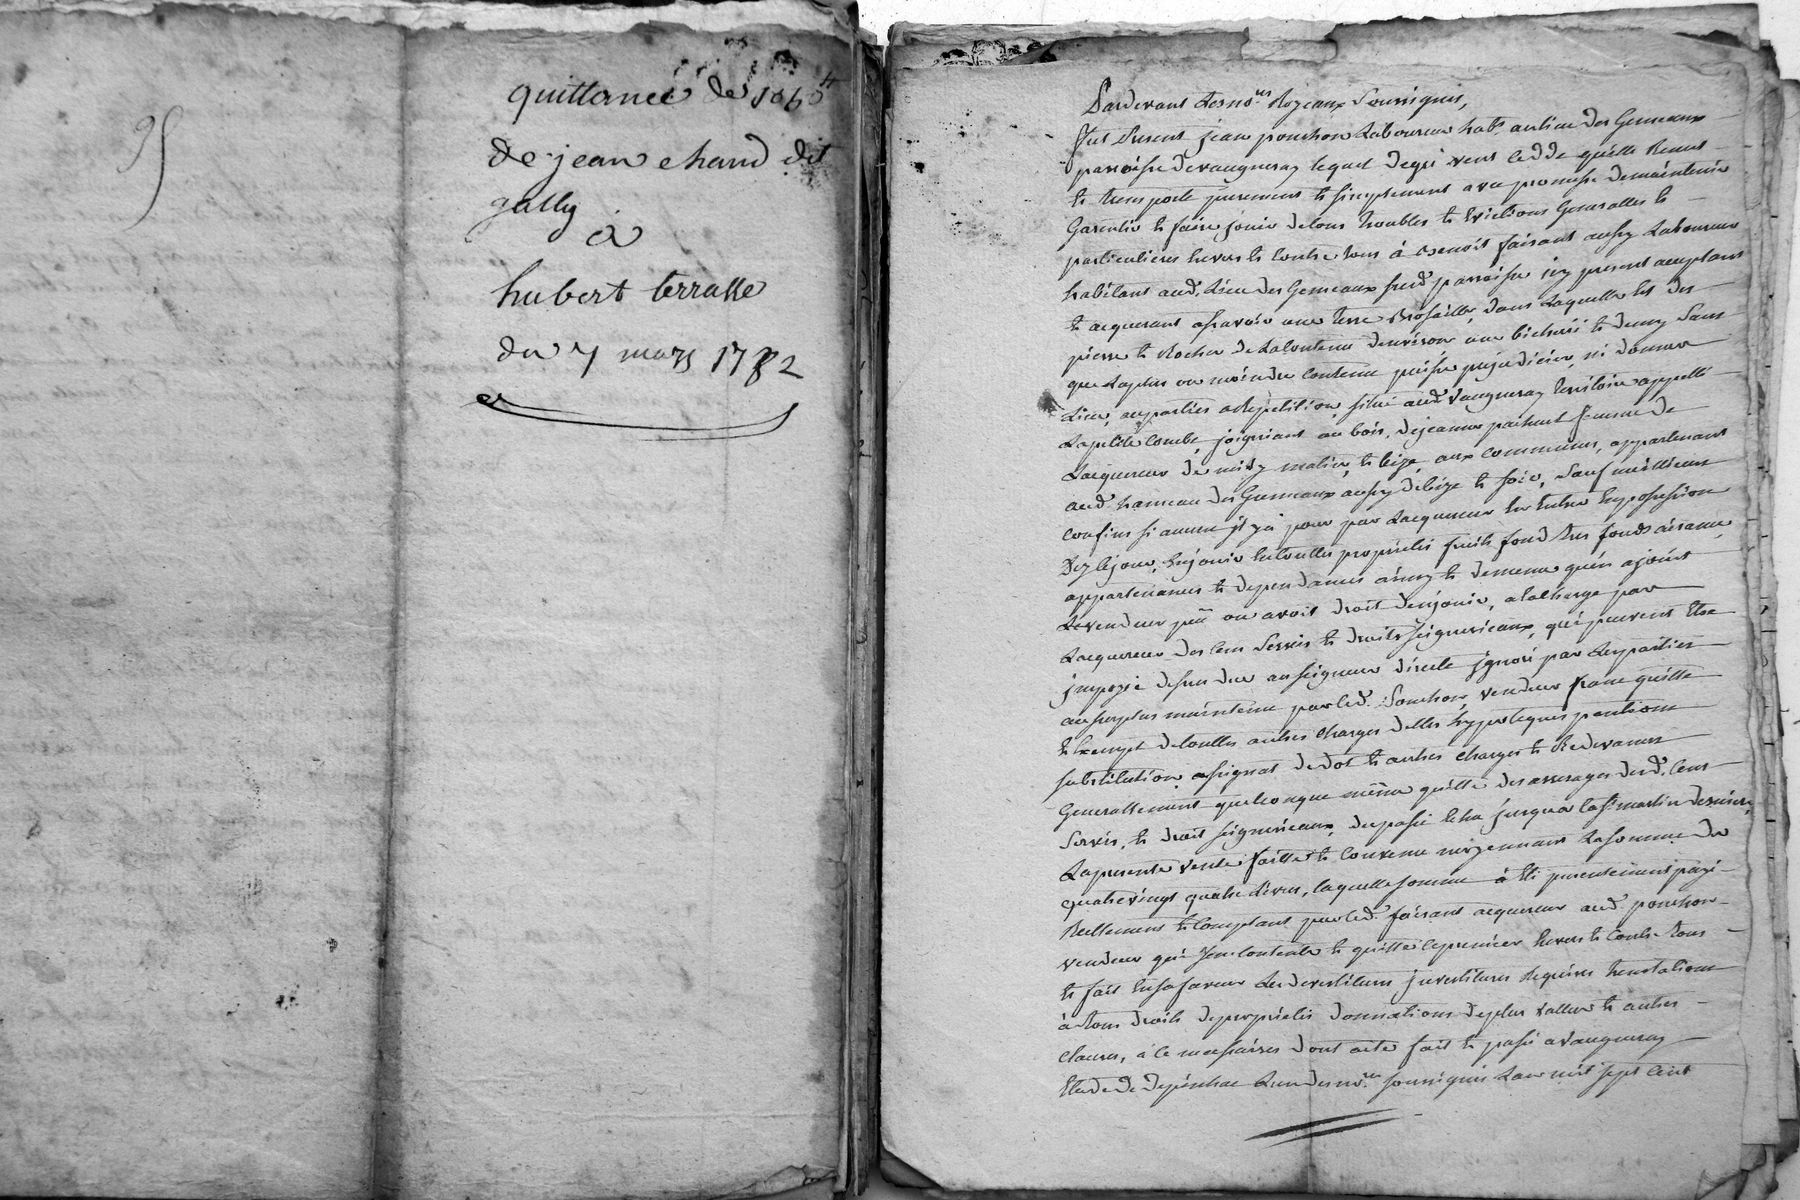 95
quittance de 1060 ₶
de jean chard dit
gally
à
hubert terrasse
du 7 mars 1782
Pardevant Les no.res Royeaux Soussignés,
fut Present jean ponchon Laboureur hab.t au lieu des Gemeaux
parroisse de vaugneray lequel de gré vent cedde quitte Remet
et transporte purement et simplement avec promesse de maintenir
Garentir et faire jouir de tous troubles et Evictions Generalles et
particulieres Envers et Contre tous à Benoit faisant aussy Laboureur
habitant aud. Lieu des Gemeaux susd. parroisse icy present acceptant
et acquerant asçavoir une terre Brossaille, dans Laquelle Est des
pierre et Rocher de La Contenue d'environ une bicherée et demy Sans
que Laplus ou moindre Contenue puisse prejudicier, ni donner
Lieu, au parties a Repetition, situé aud. vaugneray territoire appellé
Lapetite Combe, joignant au bois, de jeanne pachent femme de
Lacquereur de midy matin, et bize, aux communes, appartenant
aud. hameau des Gemeaux aussy de bize et soir, Sauf meillieurs
Confins si aucun il y a pour par Lacquereur En Entrer En possession
Dez ce jour, En jouir En toutte proprieté fruits fond tres fonds aisance,
appartenances et dependances ainsy et de meme qu'en a jouit
Le vendeur jouit ou avoit droit d'en jouir, a la Charge par
Lacquereur des Cens Servis et droits seigneuriaux, qui peuvent Etre
imposé dessus due au seigneur directe ignoré par Les parties
au surplus maintenue par Led. Ponchon, vendeur franc quitte
et Exempt de touttes autres Charges dettes hypoteques pentions
substitution, assignat de dot et autres Charges et Redevances
Generallement quelconque même quitte des arrerages desd. Cens
Servis, et droit seigneuriaux, du passé Echu jusqua la S.t martin derniere,
La presente vente faitte et Convenu moyennant La somme de
quatre vingt quatre Livres, laquelle somme à Eté presentement payé
Réellement et Comptant par Led. faisant acquereur aud. ponchon
vendeur qui s'En Contente et quitte le premier Envers et Contre Tous
et fait En sa faveur Les devestitures investitures Requises Translations
à Tous droits de proprietés donnations de plus valleur et autres
Clauses, à Ce necessaires dont acte fait et passé a vaugneray
Etude de L'un des no.res soussignés L'an mil sept cent